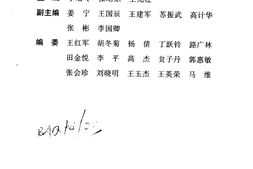 副主编 姜 宁 王国辰 王建军 苏振武 高计华
张 彬 李国卿
编 委 王红军 胡冬菊 杨 倩 丁跃铃 路广林
田金悦 李 平 高 杰 贠子丹 郭惠敏
张会珍 刘晓明 王玉杰 王英荣 马 维